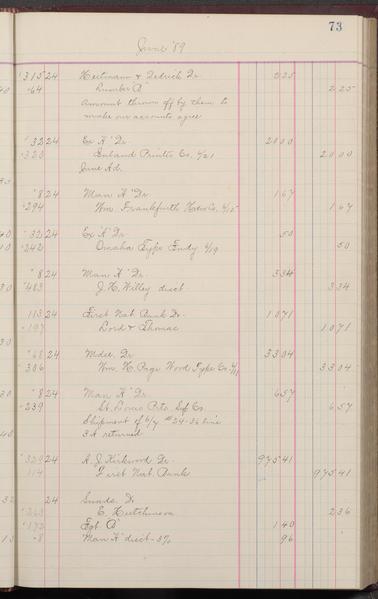 73
June '89
315 24 Heitmann & Detrich Dr 2 25
64 Lumber % 2 25
Amount thrown off by them to
make our accounts agree
32 24 Ex % Dr 20 00
323 Inland Printer Co. 6/21 20 00
June Ad.
8 24 Man % Dr 1 67
294 Wm Frankfurth Hdw Co. 6/15 1 67
32 24 Ex % Dr 50
242 Omaha Type Fndy 6/19 50
8 24 Man % Dr. 3 34
483 J. H. Willey disct 3 34
113 24 First Nat Bank Dr 10 71
197 Lord & Thomas 10 71
68 24 Mdse Dr 33 04
306 Wm H. Page Wood Type Co. 33 04
8 24 Man % Dr 6 57
239 St. Louis Ptrs Sup Co. 6 57
Shipment of 6/4 # 24-36 line
3 A returned
329 24 A. J. Kirkwood Dr. 975 41
114 First Nat Bank 975 41
24 Sunds Dr
263 E. Hutchinson 2 36
172 Ept % 1 40
8 Man % disct 3% 96